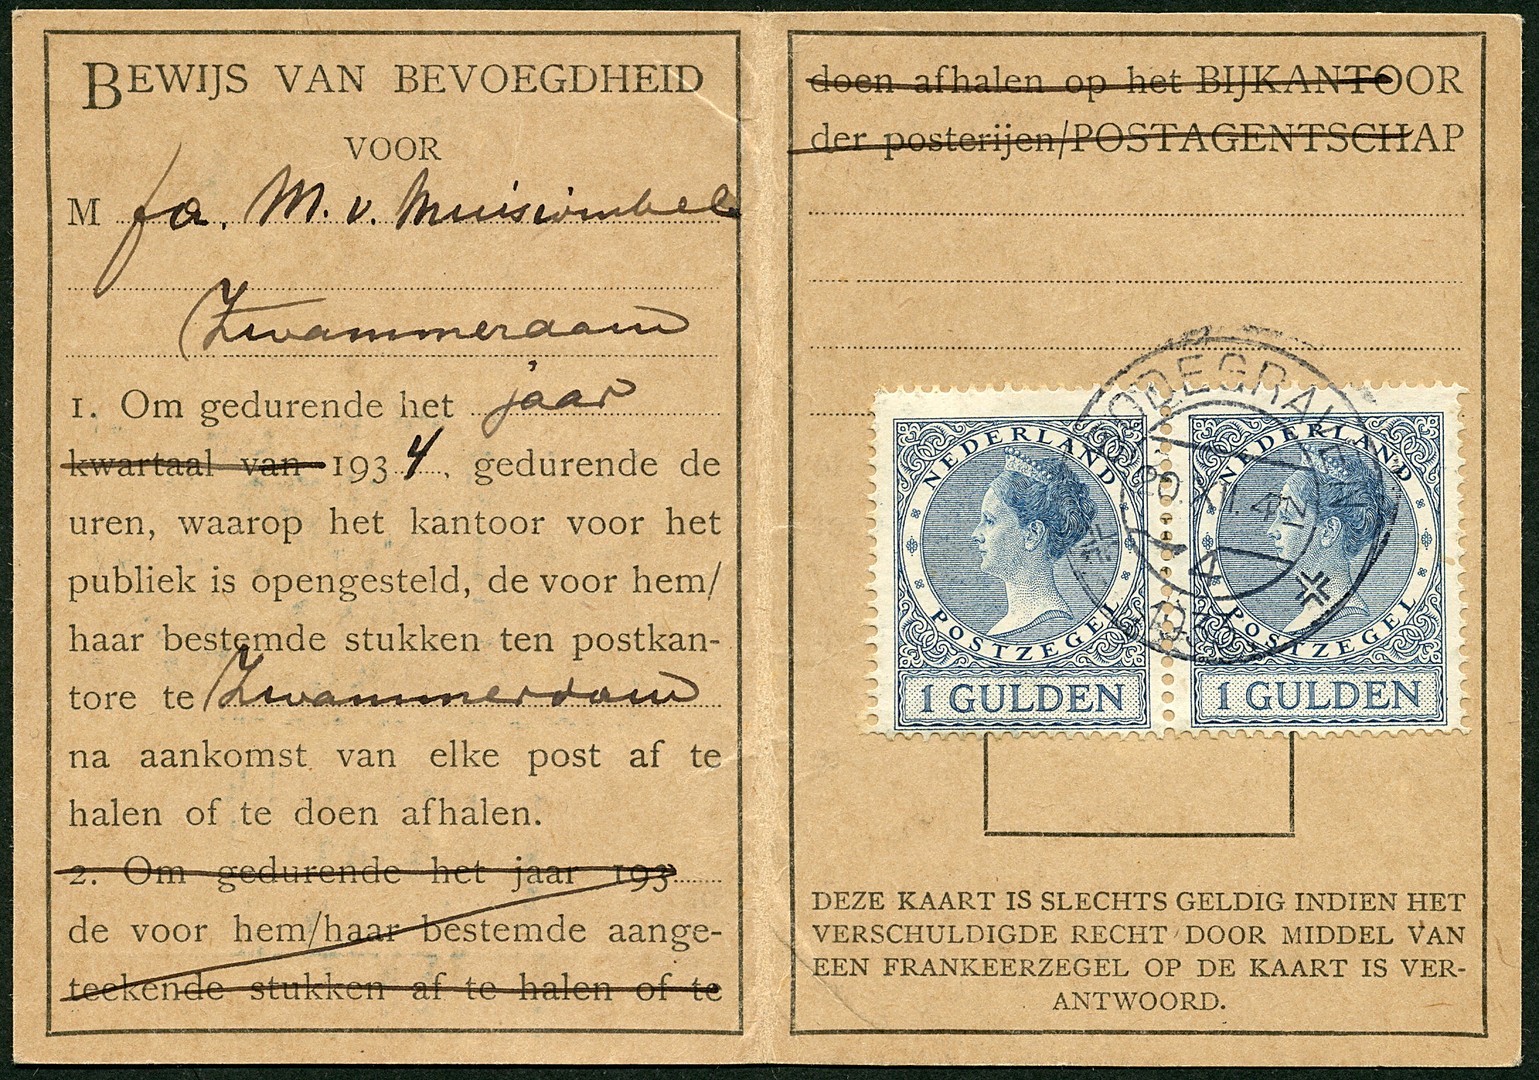 BEWIJS VAN BEVOEGDHEID
VOOR
M fa. M. v. Muiswinkel
Zwammerdam
1. Om gedurende het jaar
kwartaal van 1934, gedurende de
uren, waarop het kantoor voor het
publiek is opengesteld, de voor hem/
haar bestemde stukken ten postkan-
tore te Zwammerdam
na aankomst van elke post af te
halen of te doen afhalen.
2. Om gedurende het jaar 193
de voor hem/haar bestemde aange-
teekende stukken af te halen of te
doen afhalen op het BIJKANTOOR
der posterijen/POSTAGENTSCHAP
BODEGRAVEN
4
NEDERLAND
POSTZEGEL
1 GULDEN
NEDERLAND
POSTZEGEL
1 GULDEN
DEZE KAART IS SLECHTS GELDIG INDIEN HET
VERSCHULDIGDE RECHT DOOR MIDDEL VAN
EEN FRANKEERZEGEL OP DE KAART IS VER-
ANTWOORD.